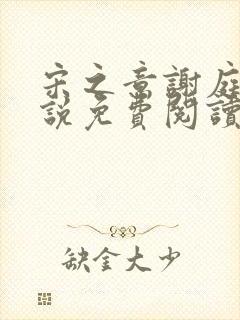 宋之章謝庭
說免費閱讀
缺金大少